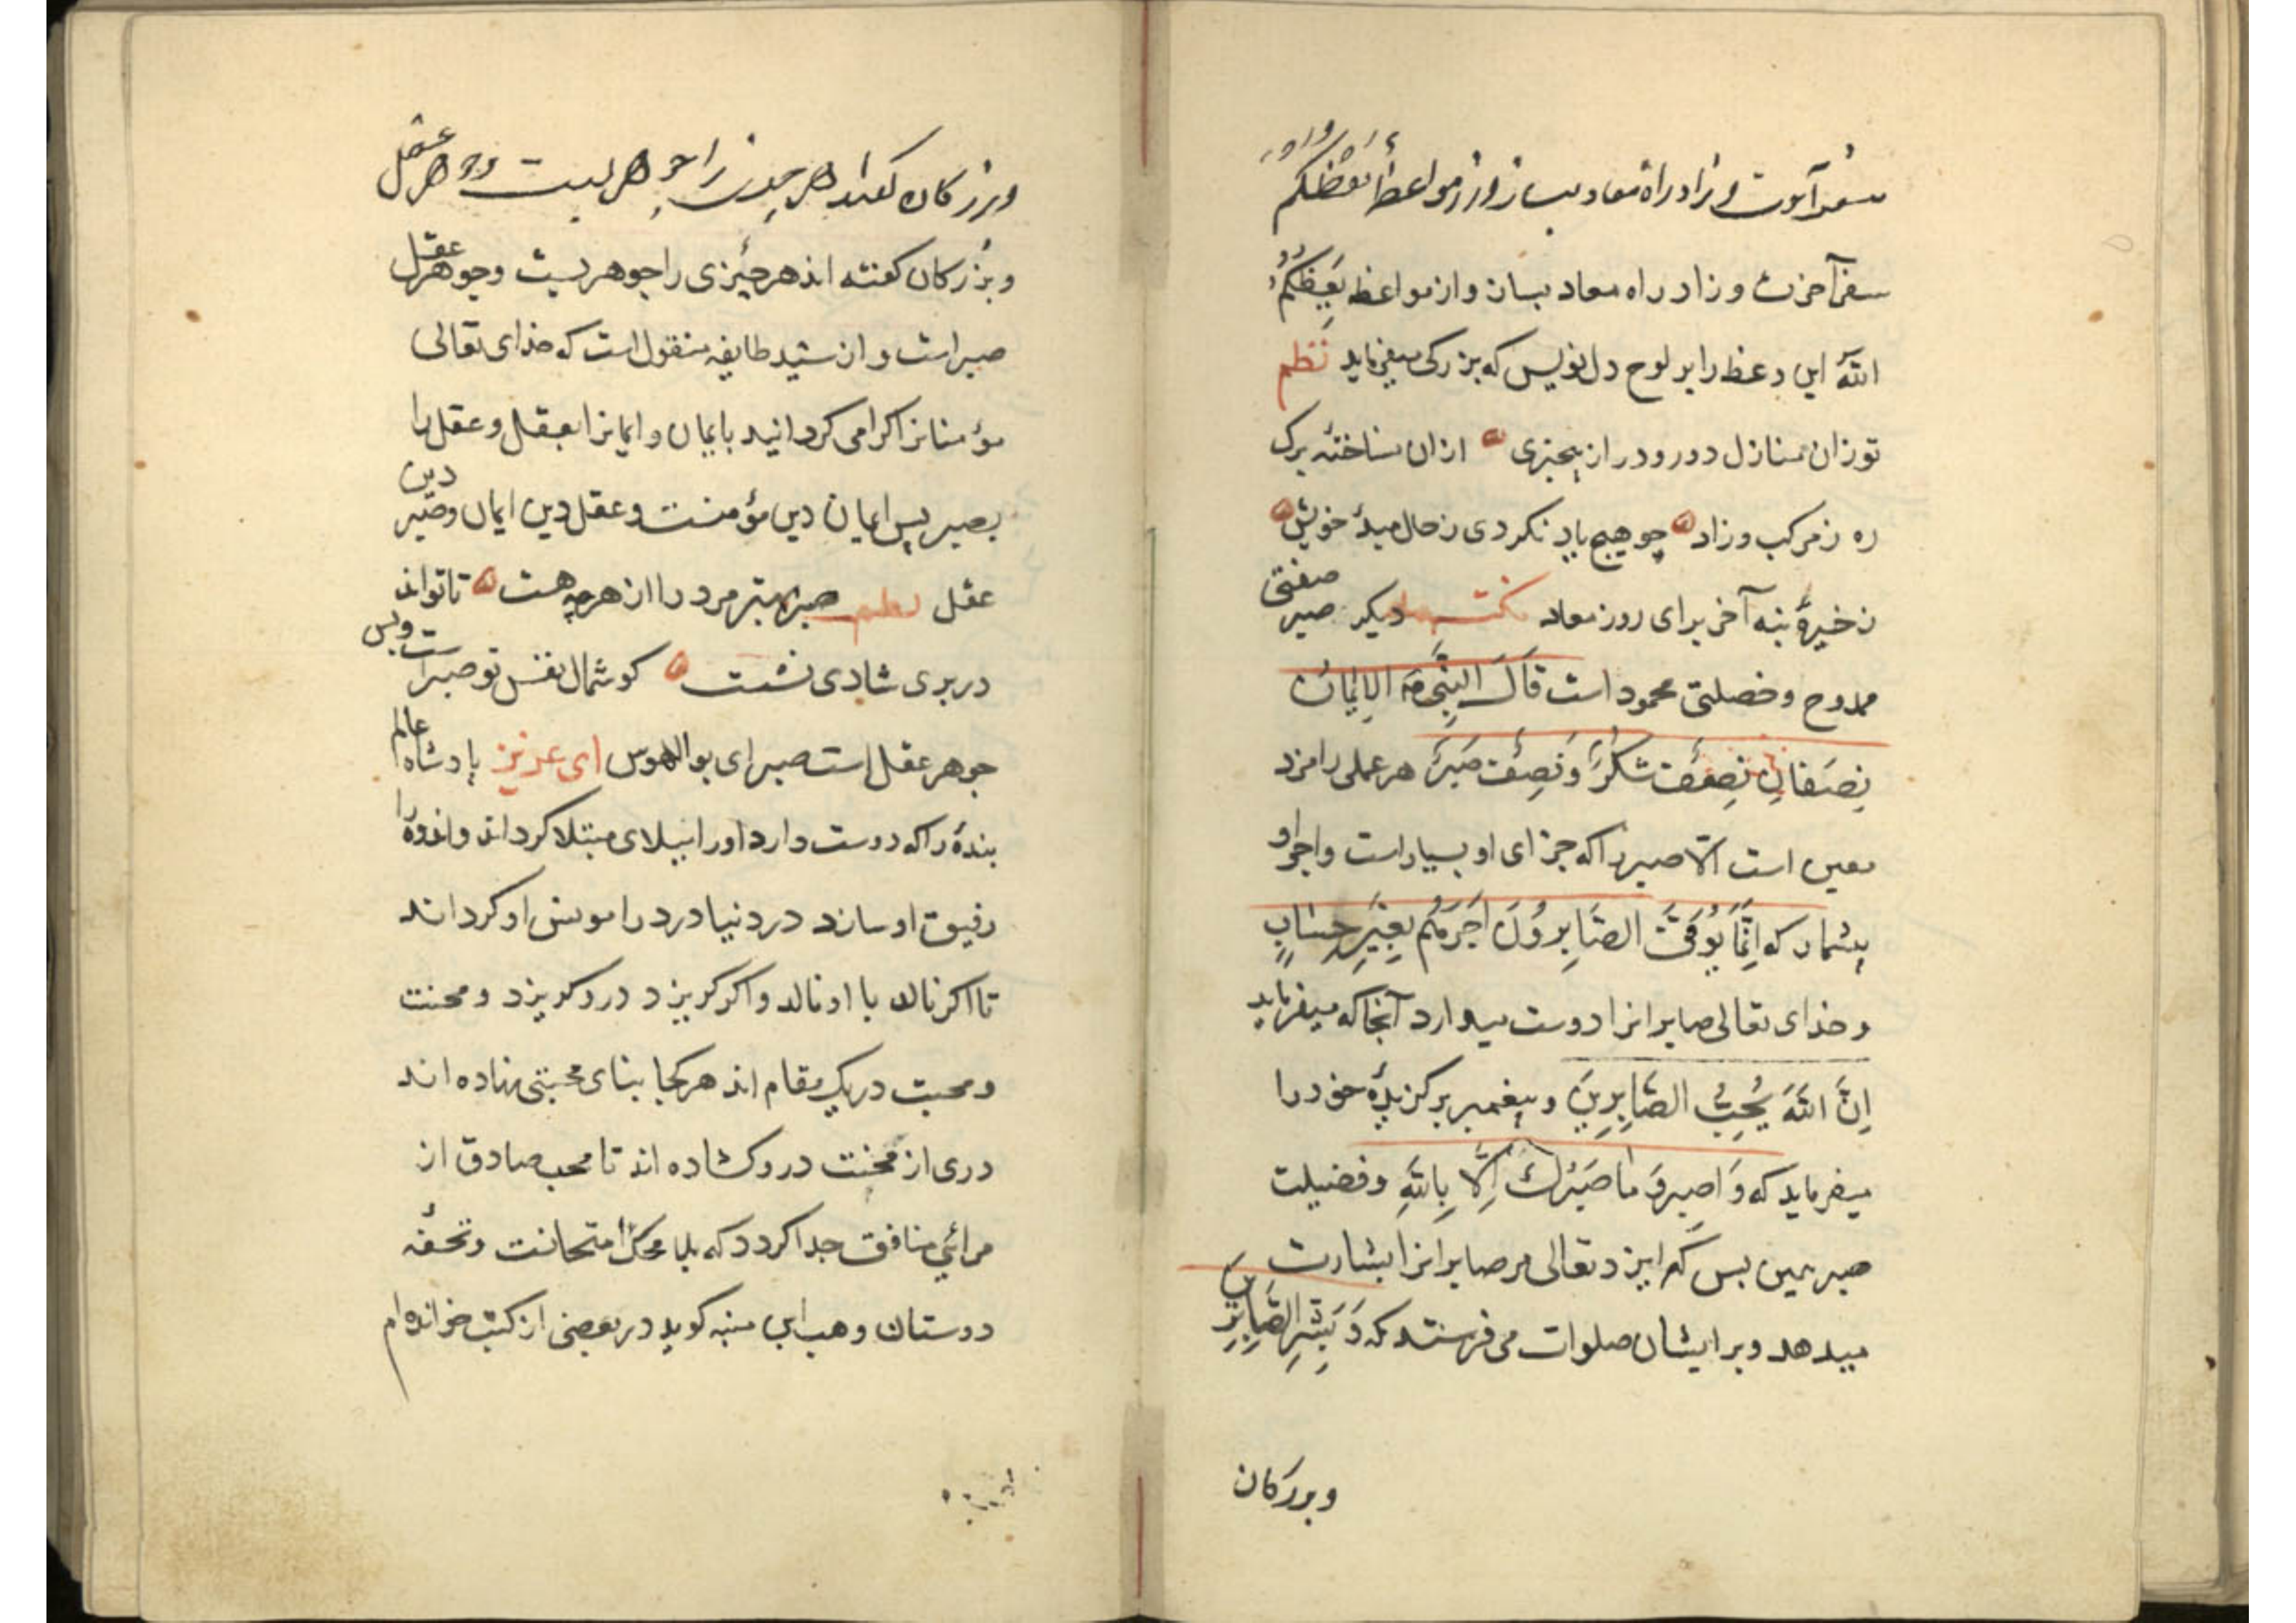 سفر آخرت و زاد راه معاد بساز و از مواعظ یعظکم
سفر آخرت و زاد راه معاد بساز و از مواعظ یَعِظَکُمُ
اللّه این وعظ را بر لوح دل نویس که بزرکی میفرماید نظم
تو زان منازل دور و دراز بیخبری ازان نساختهٔ برک
ره ز مرکب و زاد چو هیچ یاد نکردی ز حال مبدأ خویش
ذخیرهٔ بنه آخر برای روز معاد نکتهٔ دیکر صبر صفتی
ممدوح و خصلتی محمود است قَالَ النَّبِیُّ الإیمَانُ
نِصفَانِ نِصفُ شُکْرٌ وَ نِصفُ صَبْرٌ هر عملی را مزد
معین است الّا صبر را که جزای او بسیار است و اجر او
بیشمار که اِنَّمَا یُوَفَّی الصَّابِرُونَ اَجْرَهُم بِغَیْرِ حِسَابٍ
و خدای تعالی صابرانرا دوست میدارد آنجا که میفرماید
اِنَّ اللّهَ یُحِبُّ الصَّابِرِینَ و پیغمبر برکزیدهٔ خود را
میفرماید که وَ اصبِر وَ مَا صَبْرُکَ اِلّا بِاللّهِ و فضیلت
صبر همین بس که ایزد تعالی مر صابرانرا بشارت
میدهد و بر ایشان صلوات می فرستد که وَ بَشِّرِ الصَّابِرِینَ
و بزرکان
و بزرکان کفته‌اند هر چیزی را جوهریست و جوهر عقل
و بزرکان کفته اند هر چیزی را جوهریست و جوهر عقل
صبر است و از سید طایفه منقول است که خدای تعالی
مؤمنانرا کرامی کردانید بایمان و ایمانرا بعقل و عقل را
بصبر پس ایمان دین مؤمنست و عقل دین ایمان و صبر دین
عقل نظم صبر بهتر مرد را از هر چه هست تا تواند
در بری شادی نشست کوشمال نفس تو صبر است و بس
جوهر عقل است صبر ای بوالهوس ای عزیز پادشاه عالم
بندهٔ را که دوست دارد او را ببلای مبتلا کرداند و اندوه را
رفیق او سازد در دنیا درد را مونس او کرداند
تا اکر نالد با او نالد و اکر کریزد درو کریزد و محنت
و محبت در یک مقام اند هر کجا بنای محبتی نهاده اند
دری از محنت درو کشاده اند تا محب صادق از
مرائی منافق جدا کردد که بلا محک امتحانست و تحفه
دوستان وهب ابن منبه کوید در بعضی از کتب خوانده‌ام